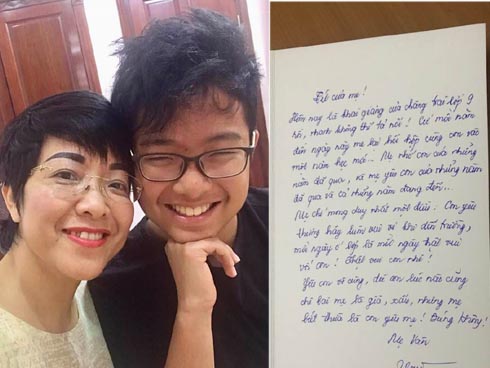 Tết của mẹ!
Hôm nay là khai giảng của chàng trai lớp 9
rồi, nhanh không thể tả nổi! Cứ mỗi năm
đến ngày này mẹ lại hồi hộp cùng con vào
một năm học mới... Mẹ nhớ con của những
năm đã qua, và mẹ yêu con của những năm
đã qua và cả những năm đang đến...
Mẹ chỉ mong duy nhất một điều: Con yêu
thương hãy luôn vui vẻ khi đến trường,
mỗi ngày ở lớp là một ngày thật vui
với con! Thật vui con nhé!
Yêu con vô cùng, dù con lúc nào cũng
chê bai mẹ là già, xấu, nhưng mẹ
biết thừa là con yêu mẹ! Đúng không!
Mẹ Vân